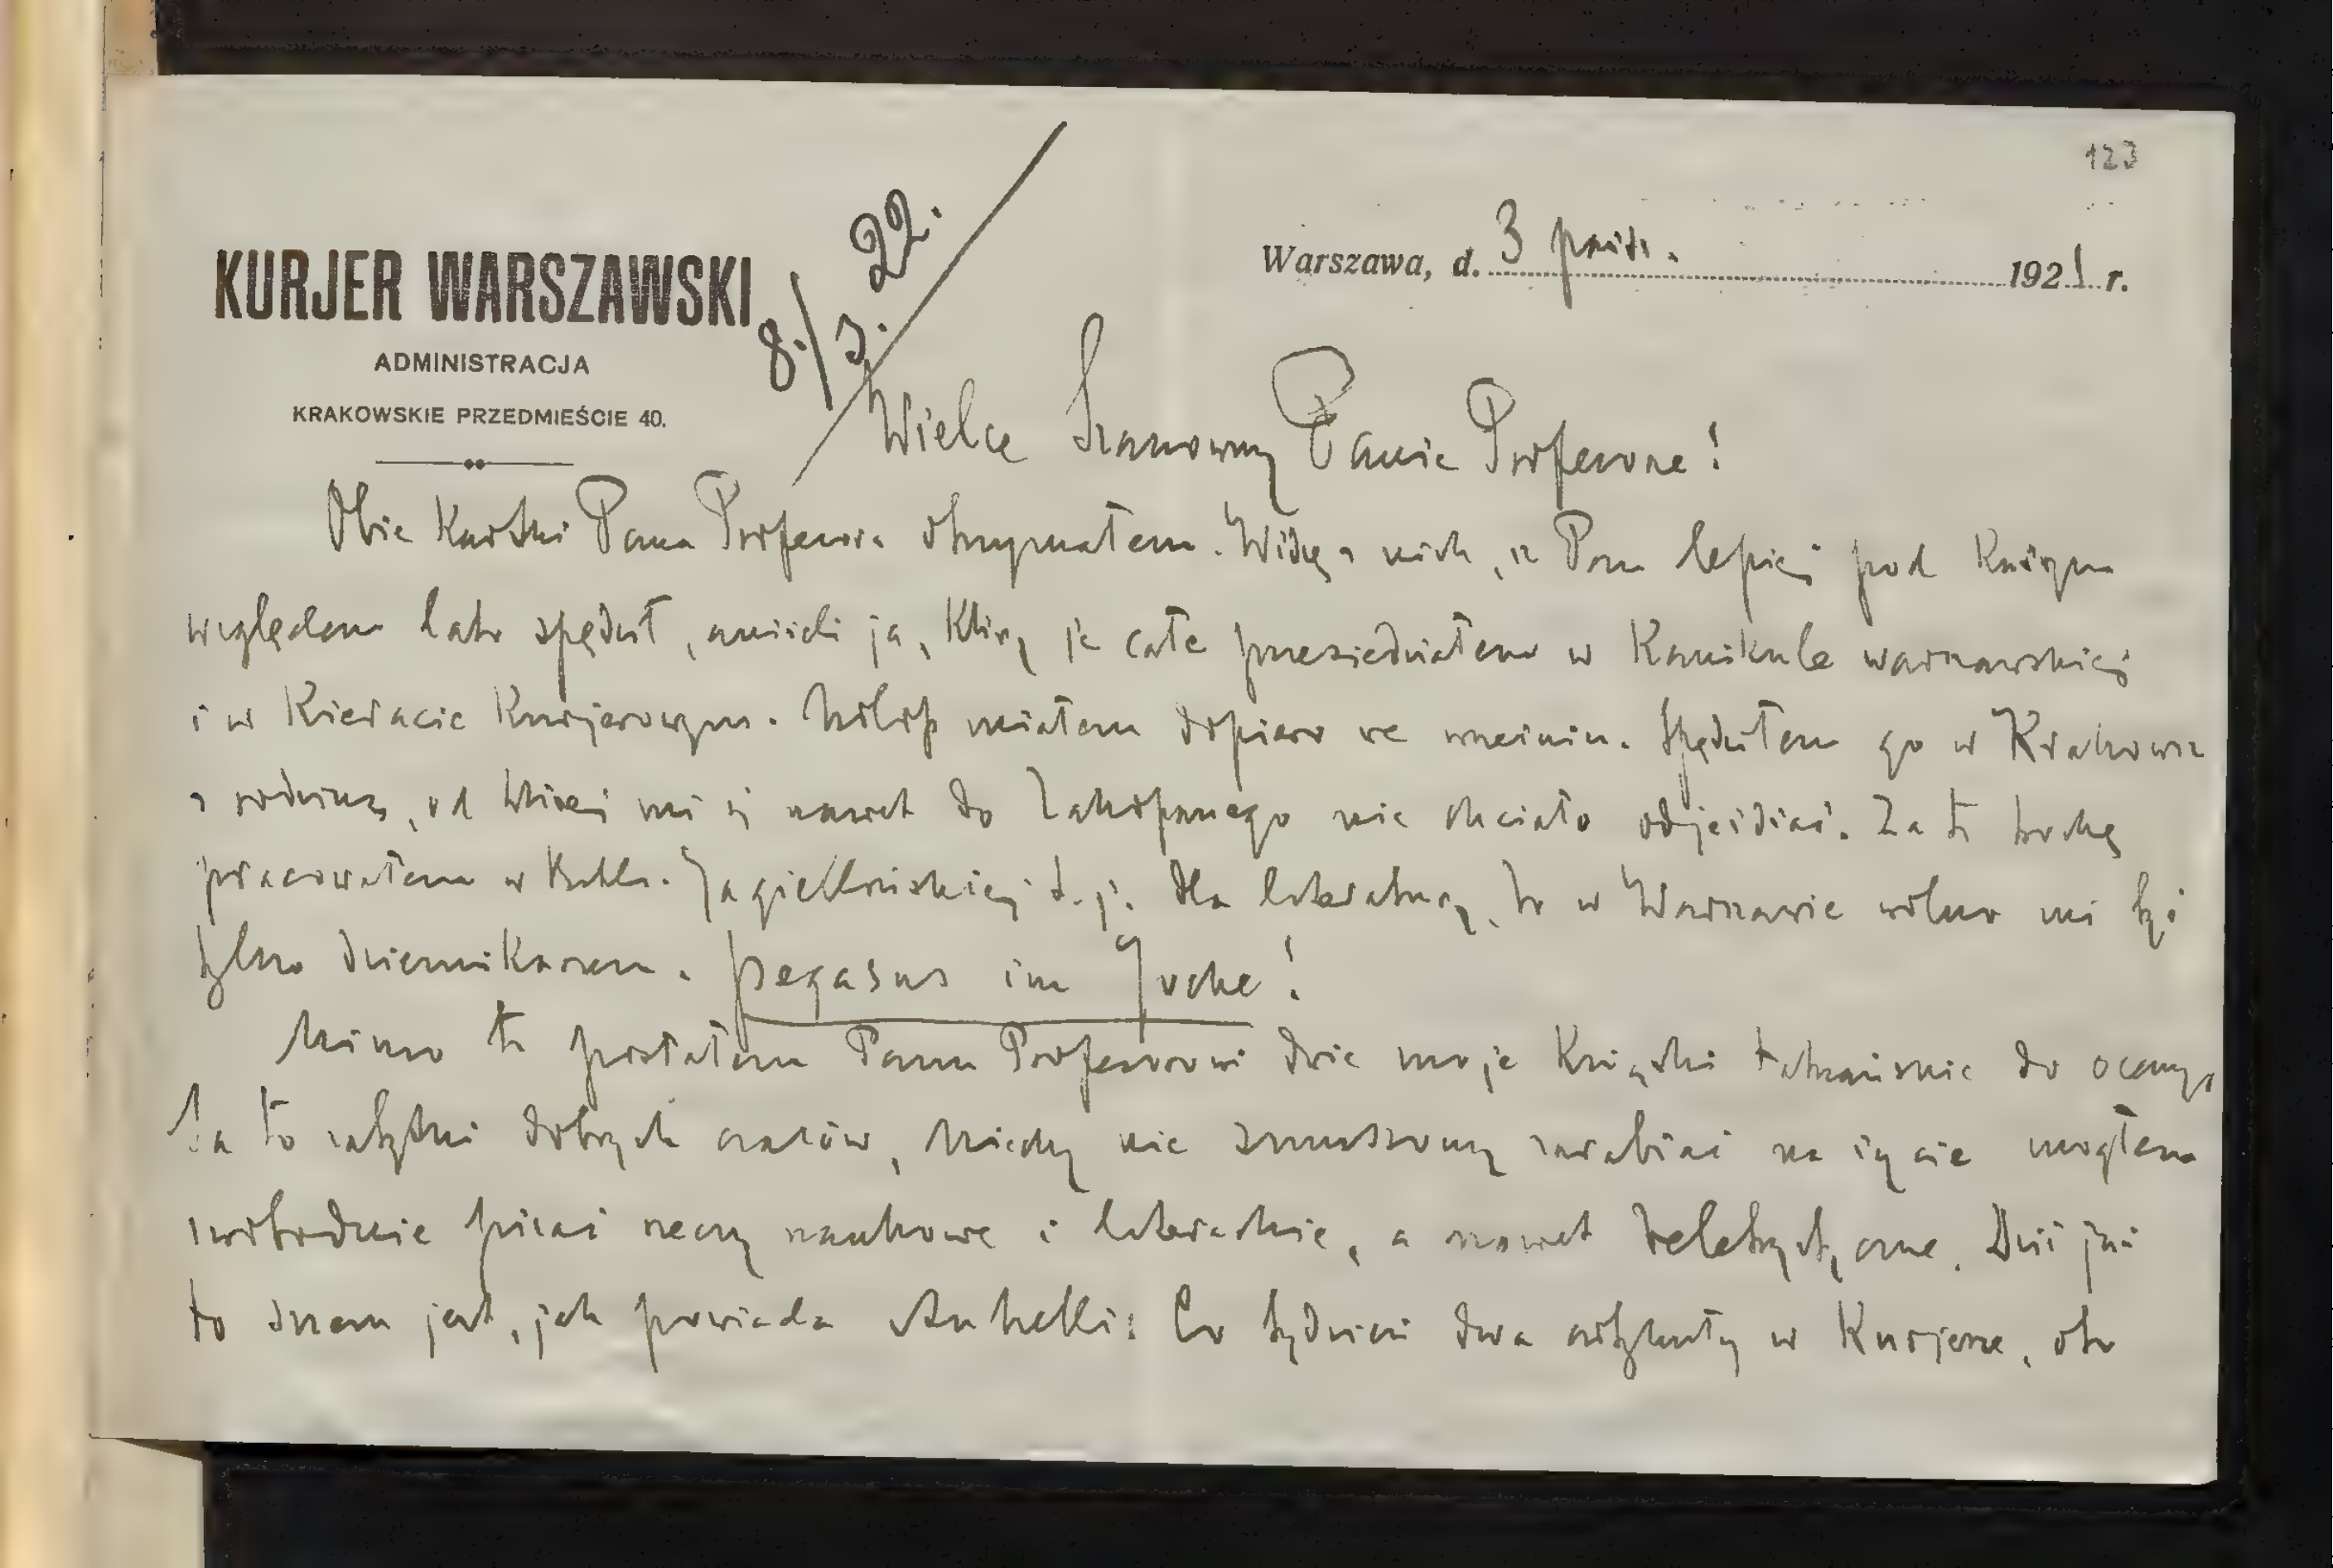 123
KURJER WARSZAWSKI
ADMINISTRACJA
KRAKOWSKIE PRZEDMIEŚCIE 40.
8./3. 22.
Warszawa, d. 3 paźdz. 1921 r.
Wielce Szanowny Panie Profesorze!
Obie Kartki Pana Profesora otrzymałem. Widzę z nich, iż Pan lepiej pod Każdym
względem lato spędził, aniżeli ja, który je całe przesiedziałem w Kanikule warszawskiej
i w Kieracie Kurjerowym. Urlop miałem dopiero we wrześniu. Spędziłem go w Krakowie
z rodziną, od której mi się nawet do Zakopanego nie chciało odjeżdżać. Za to trochę
pracowałem w Jagiellońskiej t. j. dla literatury, bo w Warszawie wolno mi być
tylko dziennikarzem. Pegasus im Joche!
Mimo to posłałem Panu Profesorowi dwie moje Książki tatrzańskie do oceny.
Są to zabytki dobrych czasów, kiedy nie zmuszony zarabiać na życie mogłem
swobodnie pisać rzeczy naukowe i literackie, a nawet beletrystyczne. Dziś już
to snem jest, jak powiada Anhelli: Co tydzień dwa artykuły w Kurjerze, oto